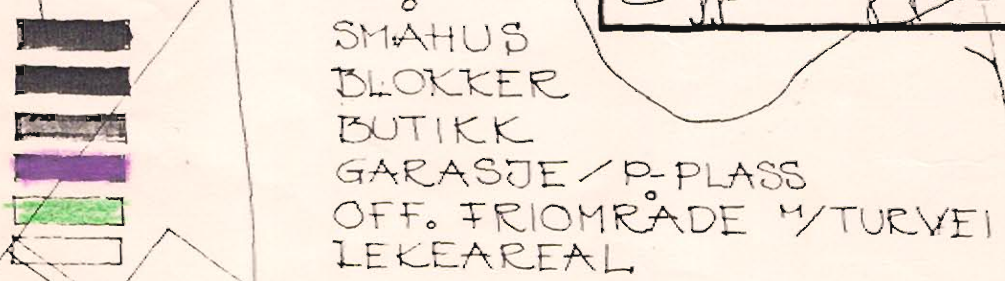 SMÅHUS
BLOKKER
BUTIKK
GARASJE / P-PLASS
OFF. FRIOMRÅDE M/TURVEI
LEKEAREAL